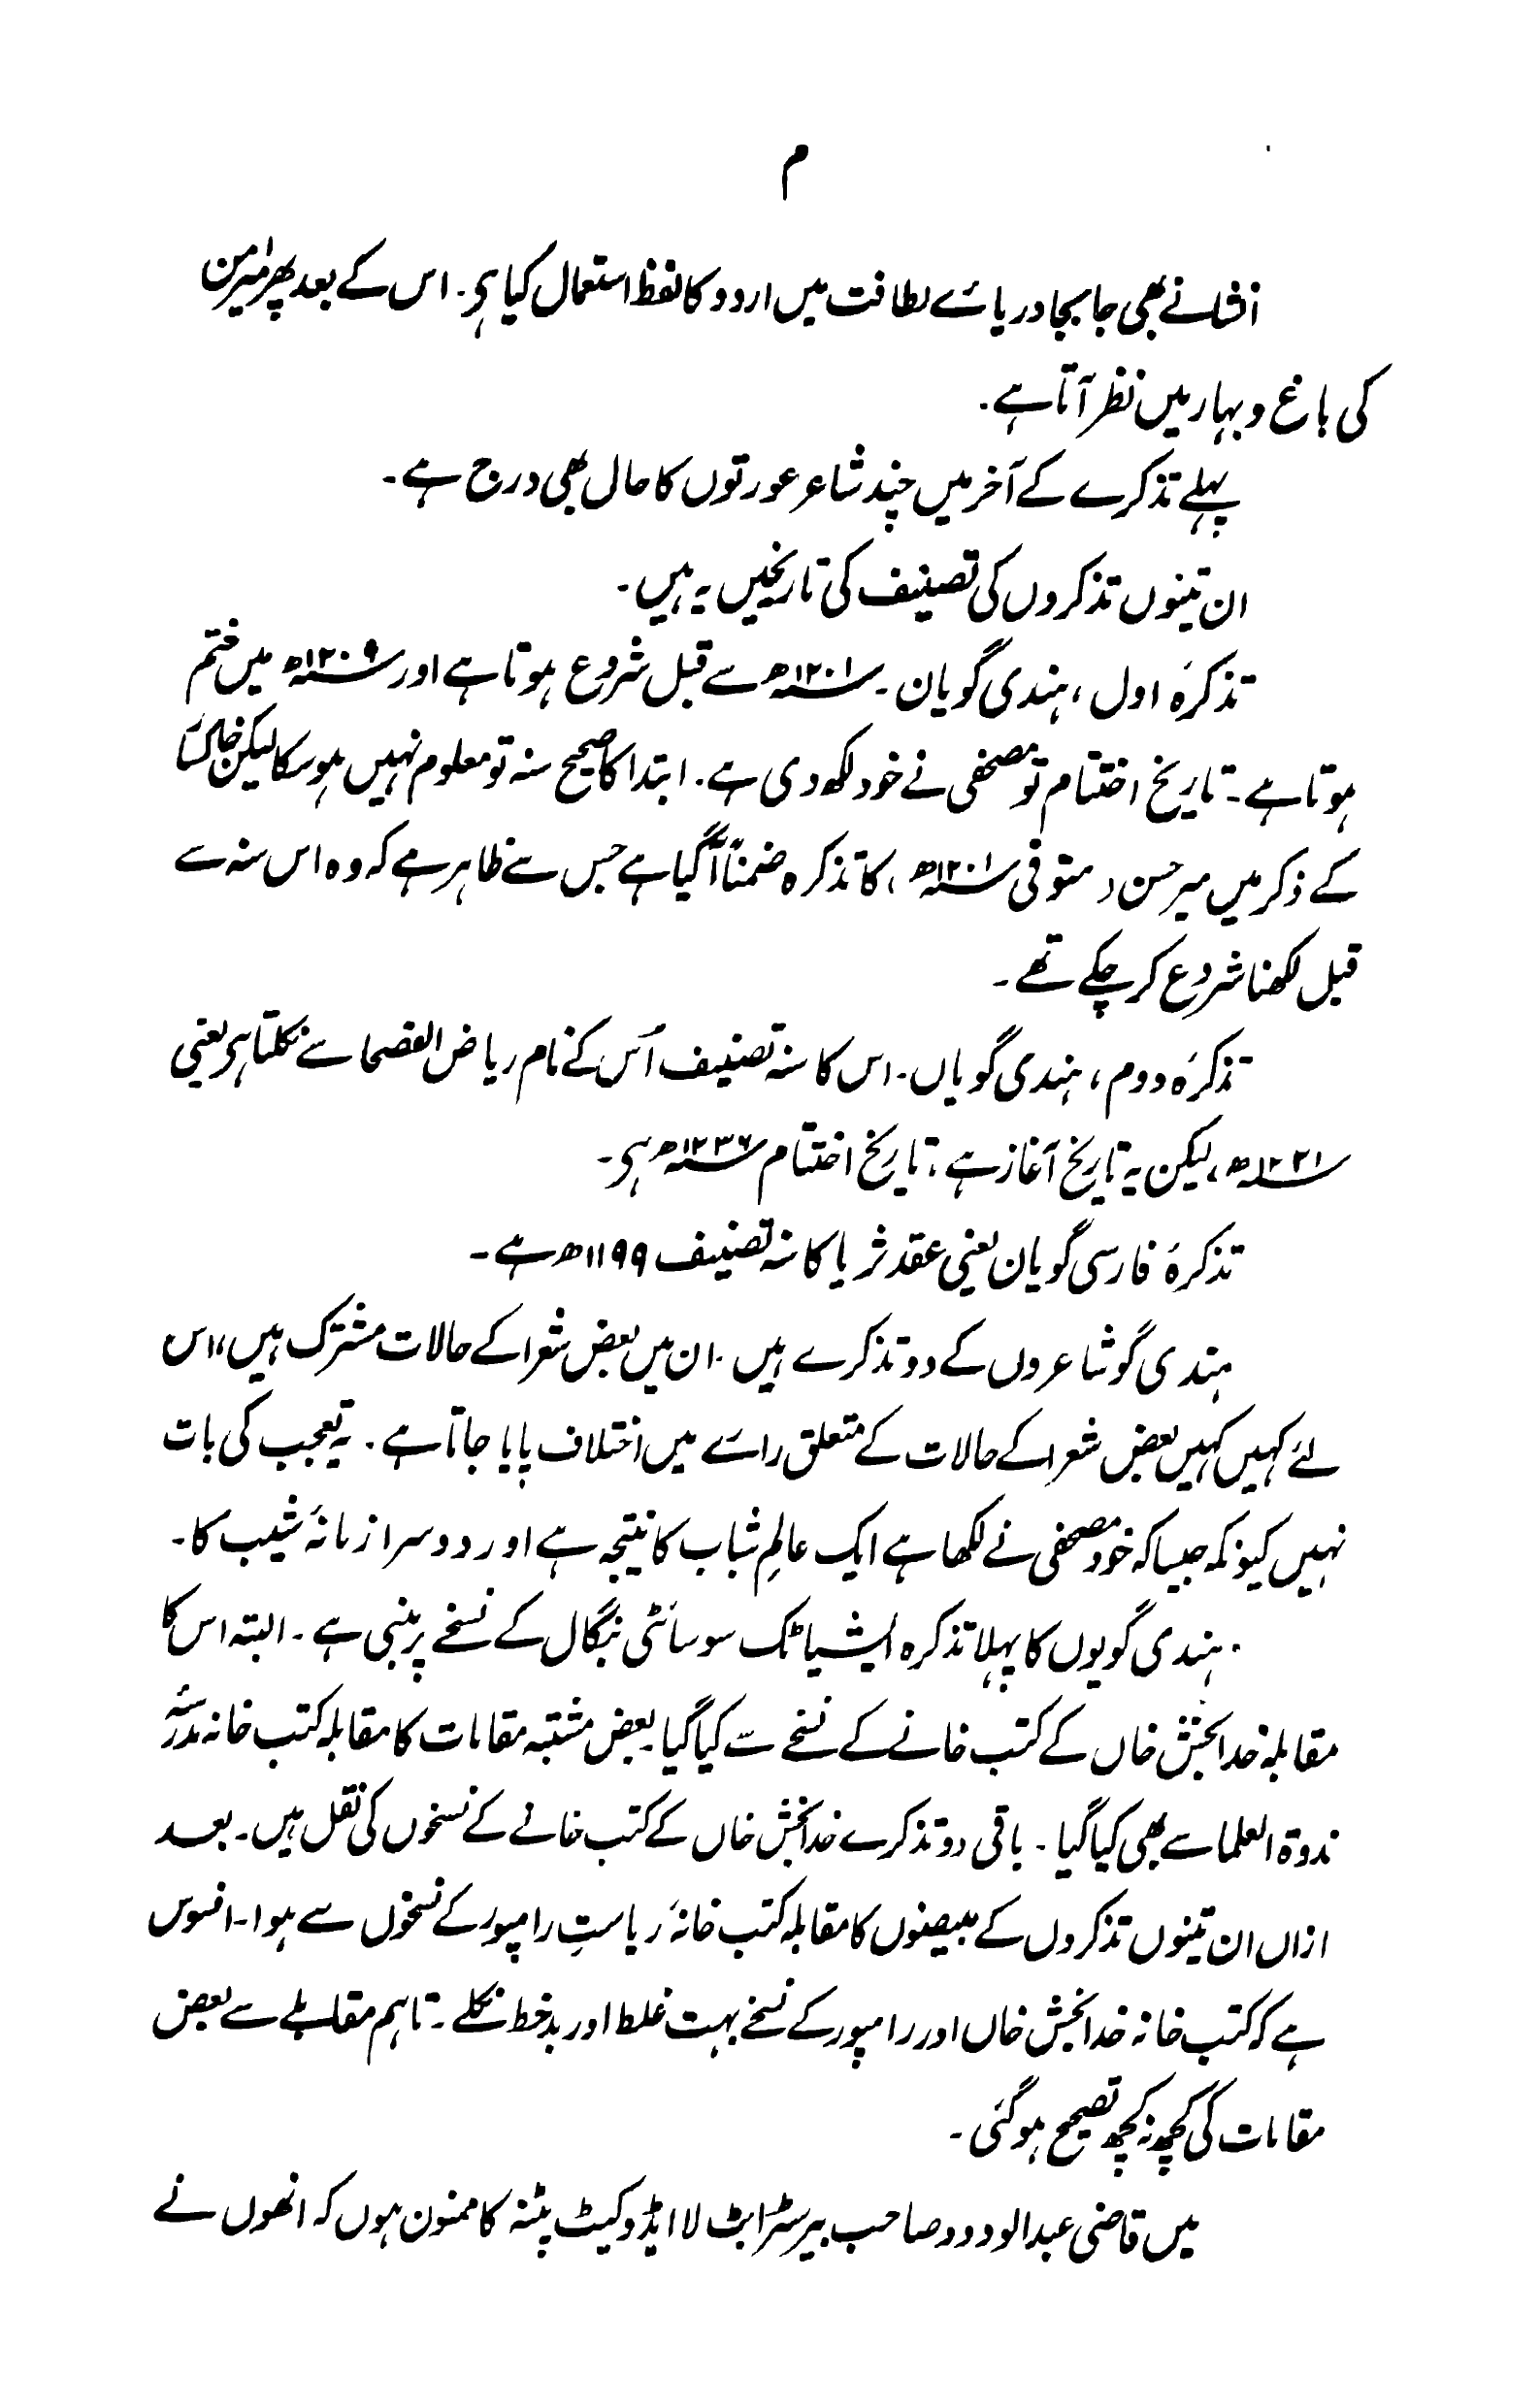 م
انشا نے بھی جا بجا دریائے لطافت میں اردو کا لفظ استعمال کیا ہی۔ اس کے بعد پھر میرامن
کی باغ و بہار میں نظر آتا ہے۔
پہلے تذکرے کے آخر میں چند شاعر عورتوں کا حال بھی درج ہے۔
ان تینوں تذکروں کی تصنیف کی تاریخیں یہ ہیں۔
تذکرۂ اول، ہندی گویان۔ ۱۲۰۱ھ سے قبل شروع ہوتا ہے اور ۱۲۰۹ھ میں ختم
ہوتا ہے۔ تاریخ اختتام تو مصحفی نے خود لکھ دی ہے۔ ابتدا کا صحیح سنہ تو معلوم نہیں ہو سکا لیکن خاکسار
کے ذکر میں میر حسن (متوفی ۱۲۰۱ھ) کا تذکرہ ضمناً آگیا ہے جس سے ظاہر ہے کہ وہ اس سنہ سے
قبل لکھنا شروع کر چکے تھے۔
تذکرۂ دوم، ہندی گویاں۔ اس کا سنہ تصنیف اُس کے نام ریاض الفصحا سے نکلتا ہی یعنی
۱۲۲۱ھ، لیکن یہ تاریخ آغاز ہے، تاریخ اختتام ۱۲۳۶ھ ہی۔
تذکرۂ فارسی گویان یعنی عقد ثریا کا سنہ تصنیف ۱۱۹۹ھ ہے۔
ہندی گو شاعروں کے دو تذکرے ہیں۔ ان میں بعض شعرا کے حالات مشترک ہیں، اس
لئے کہیں کہیں بعض شعرا کے حالات کے متعلق رائے میں اختلاف پایا جاتا ہے۔ یہ تعجب کی بات
نہیں کیونکہ جیسا کہ خود مصحفی نے لکھا ہے ایک عالمِ شباب کا نتیجہ ہے اور دوسرا زمانۂ شیب کا۔
ہندی گویوں کا پہلا تذکرہ ایشیاٹک سوسائٹی بنگال کے نسخے پر مبنی ہے۔ البتہ اس کا
مقابلہ خدا بخش خاں کے کتب خانے کے نسخے سے کیا گیا۔ بعض مشتبہ مقامات کا مقابلہ کتب خانہ مدرسۂ
ندوۃ العلما سے بھی کیا گیا۔ باقی دو تذکرے خدا بخش خاں کے کتب خانے کے نسخوں کی نقل ہیں۔ بعد
ازاں ان تینوں تذکروں کے مبیضوں کا مقابلہ کتب خانۂ ریاستِ رامپور کے نسخوں سے ہوا۔ افسوس
ہے کہ کتب خانہ خدا بخش خاں اور رامپور کے نسخے بہت غلط اور بدخط نکلے۔ تاہم مقابلے سے بعض
مقامات کی کچھ نہ کچھ تصحیح ہو گئی۔
میں قاضی عبدالودود صاحب بیرسٹر ایٹ لا ایڈوکیٹ پٹنہ کا ممنون ہوں کہ انھوں نے